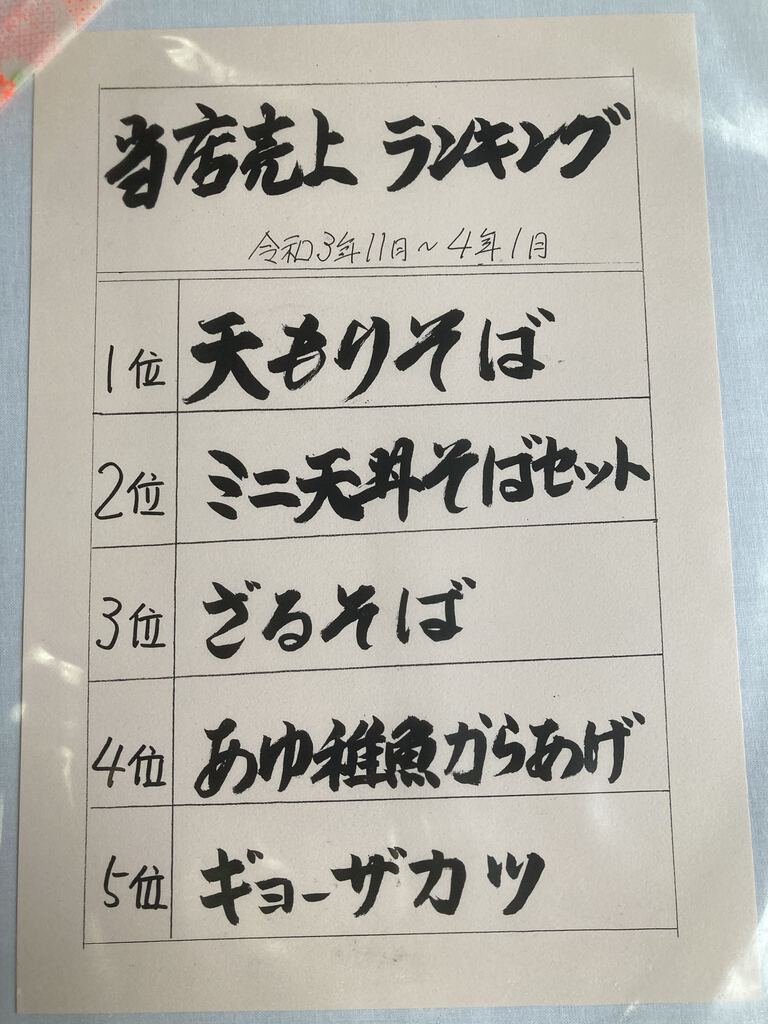 当店売上 ランキング
令和3年11月～4年1月
1位 天もりそば
2位 ミニ天丼そばセット
3位 ざるそば
4位 あゆ稚魚からあげ
5位 ギョーザカツ